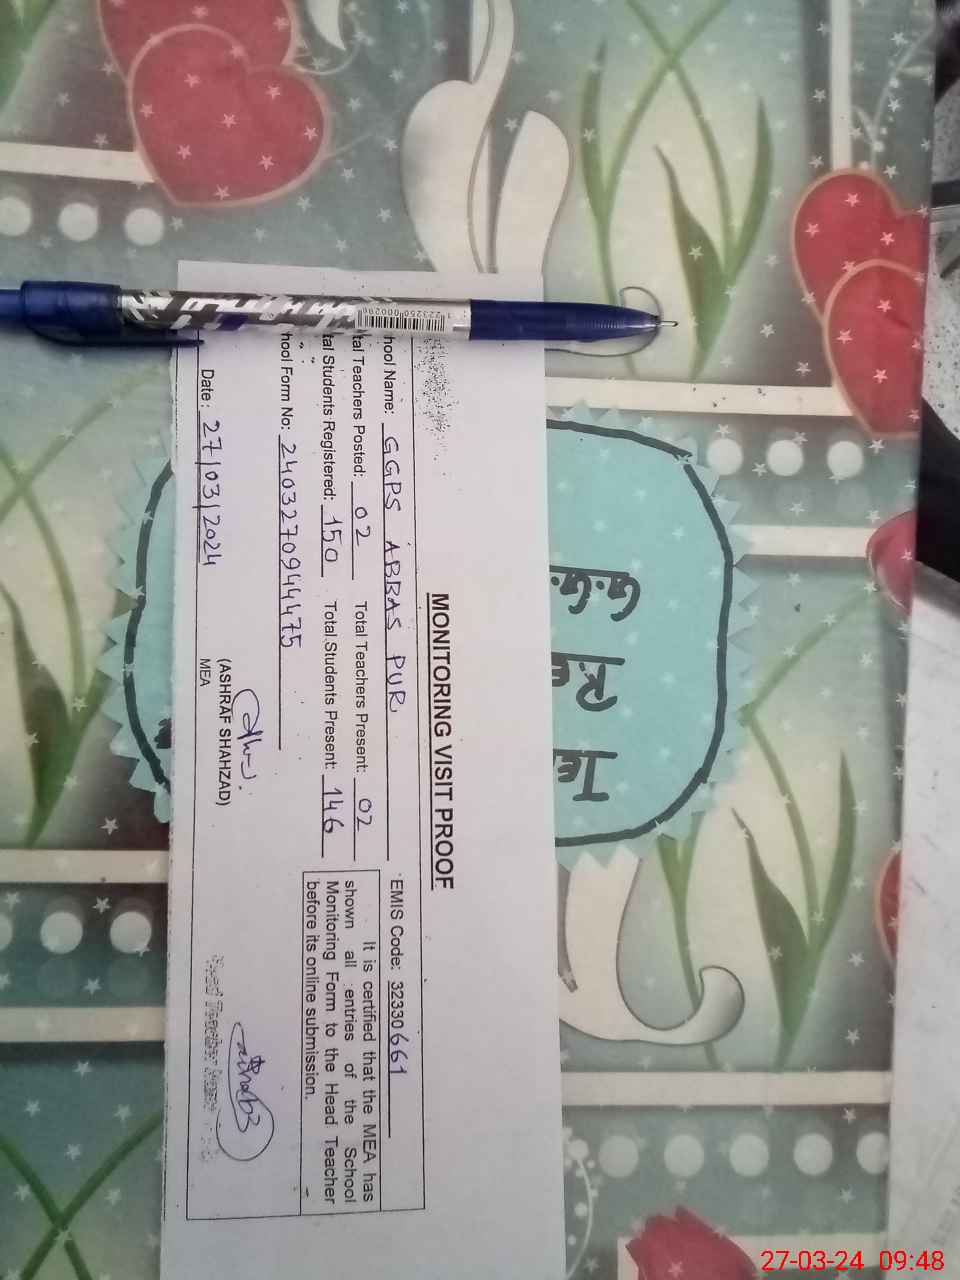 MONITORING VISIT PROOF
hool Name: GGPS ABBAS PUR EMIS Code: 32330661
tal Teachers Posted: 02 Total Teachers Present: 02
tal Students Registered: 150 Total Students Present: 146
It is certified that the MEA has
shown all entries of the School
Monitoring Form to the Head Teacher
before its online submission.
hool Form No: 24032709444475
(ASHRAF SHAHZAD)
MEA
Date: 27/03/2024
Head Teacher
G.G.
27-03-24 09:48